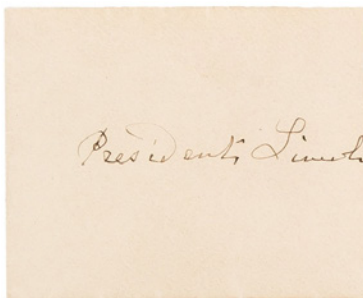 Presidents Lincoln